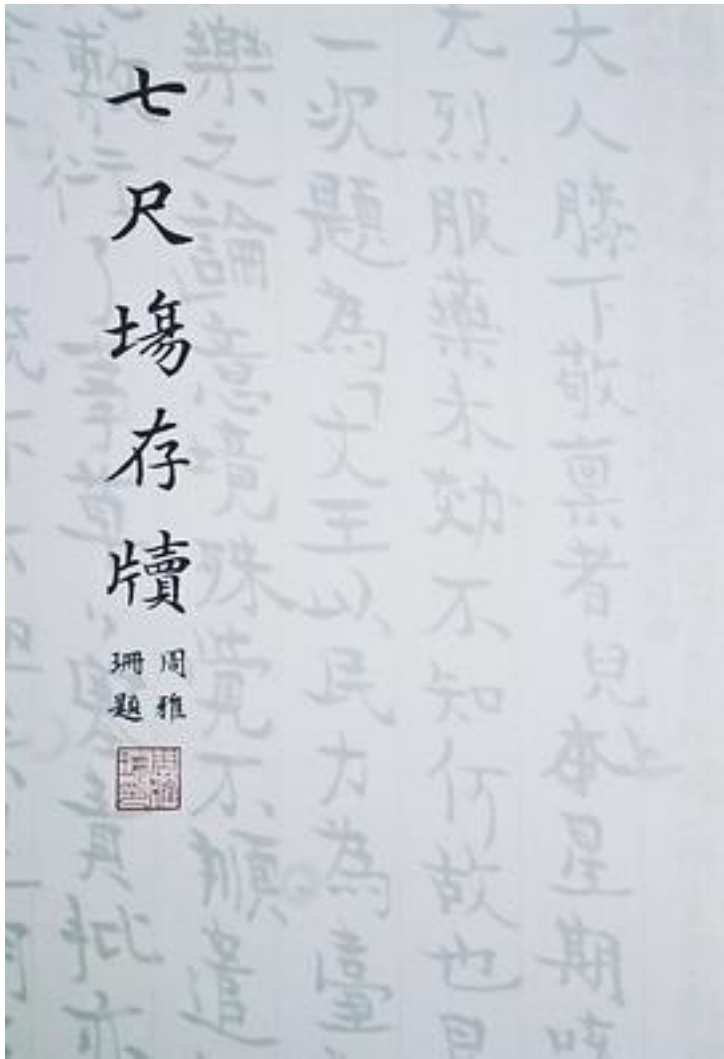 七尺塲存牘
周雅
珊題
大人膝下敬稟者兒上本星期咳
尤烈服藥未効不知何故也
一次題為「文王以民力為臺
樂之論意境殊覺不順
責批亦